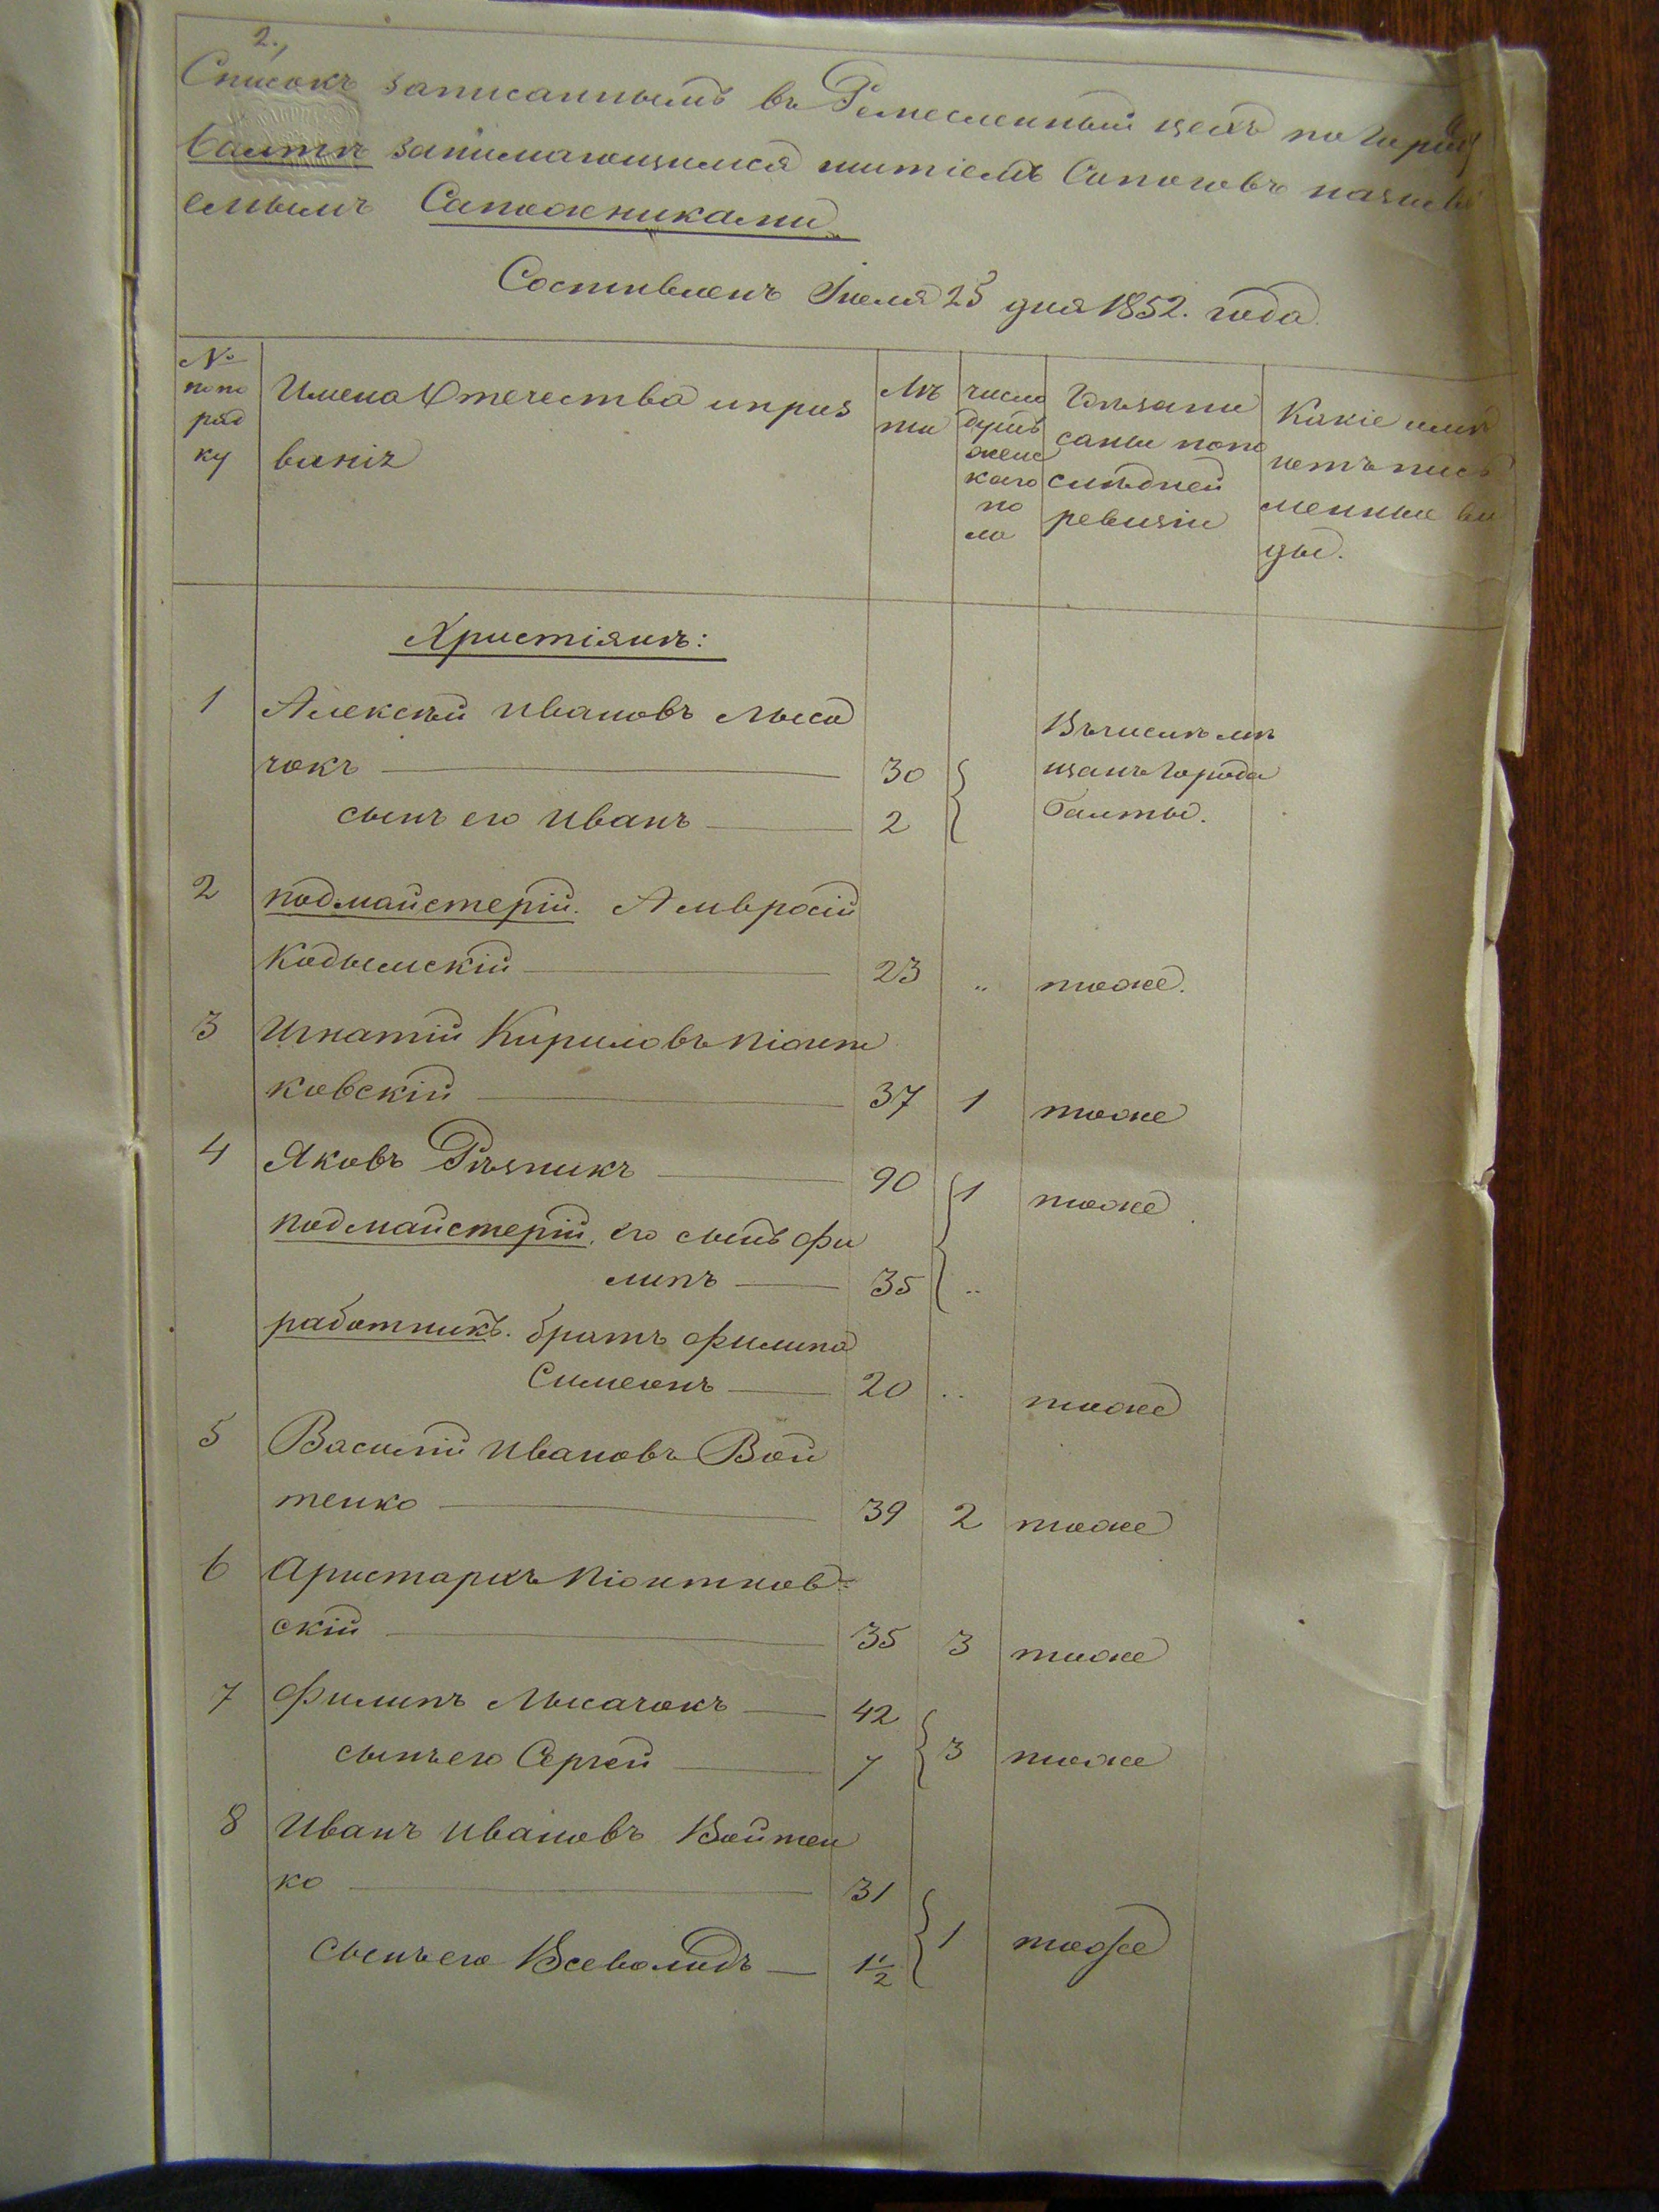 2.,
Списокъ записаннымъ въ Ремесленный цехъ по городу
Балтѣ занимающимся шитіемъ Сапоговъ называ
емымъ Сапожниками
Составленъ Іюля 25 дня 1852. года.
№ по по ряд ку
Имена Отечества и проз ванія
Лѣ та
число душъ женс каго по ла
Гдѣ запи саны по по слѣдней ревизіи
Какіе имѣ ютъ пись менные ви ды.
Христіянъ:
1 Алексѣй Ивановъ Лыса
чокъ 30
сынъ его Иванъ 2
Въ числѣ мѣ
щанъ города
Балты.
2 подмайстерій. Амвросій
Кодымскій 23 „ тоже.
3 Игнатій Кириловъ Піонт
ковскій 37 1 тоже
4 Яковъ Рѣзникъ 90 1 тоже
подмайстерій. его сынъ Фи
липъ 35 „
работникъ. братъ Филипа
Симеонъ 20 „ тоже
5 Василій Ивановъ Вой
тенко 39 2 тоже
6 Аристархъ Піонтков-
скій 35 3 тоже
7 Филипъ Лысачокъ 42
сынъ его Сергей 7 3 тоже
8 Иванъ Ивановъ Войтен
ко 31
сынъ его Всеволодъ 1½ 1 тоже